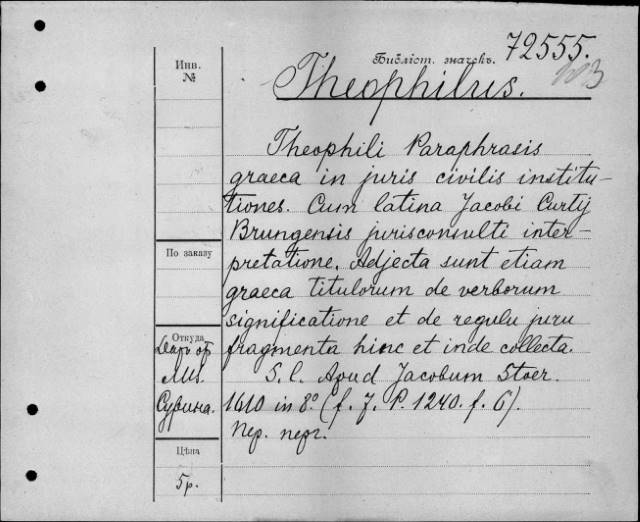 Библіот. значекъ. 72555.
Инв.
№
Theophilus.
Theophili Paraphrasis
graeca in juris civilis institu-
tiones. Cum latina Jacobi Curtij
Brungensis jurisconsulti inter-
pretatione. Adjecta sunt etiam
graeca titulorum de verborum
significatione et de regulu juru
fragmenta hinc et inde collecta.
S. l. Apud Jacobum Stoer.
1610 in 8º (f. 7. P. 1240. f. 6).
Пер. перг.
По заказу
Откуда
Даръ от
Сувина.
Цѣна
5р.